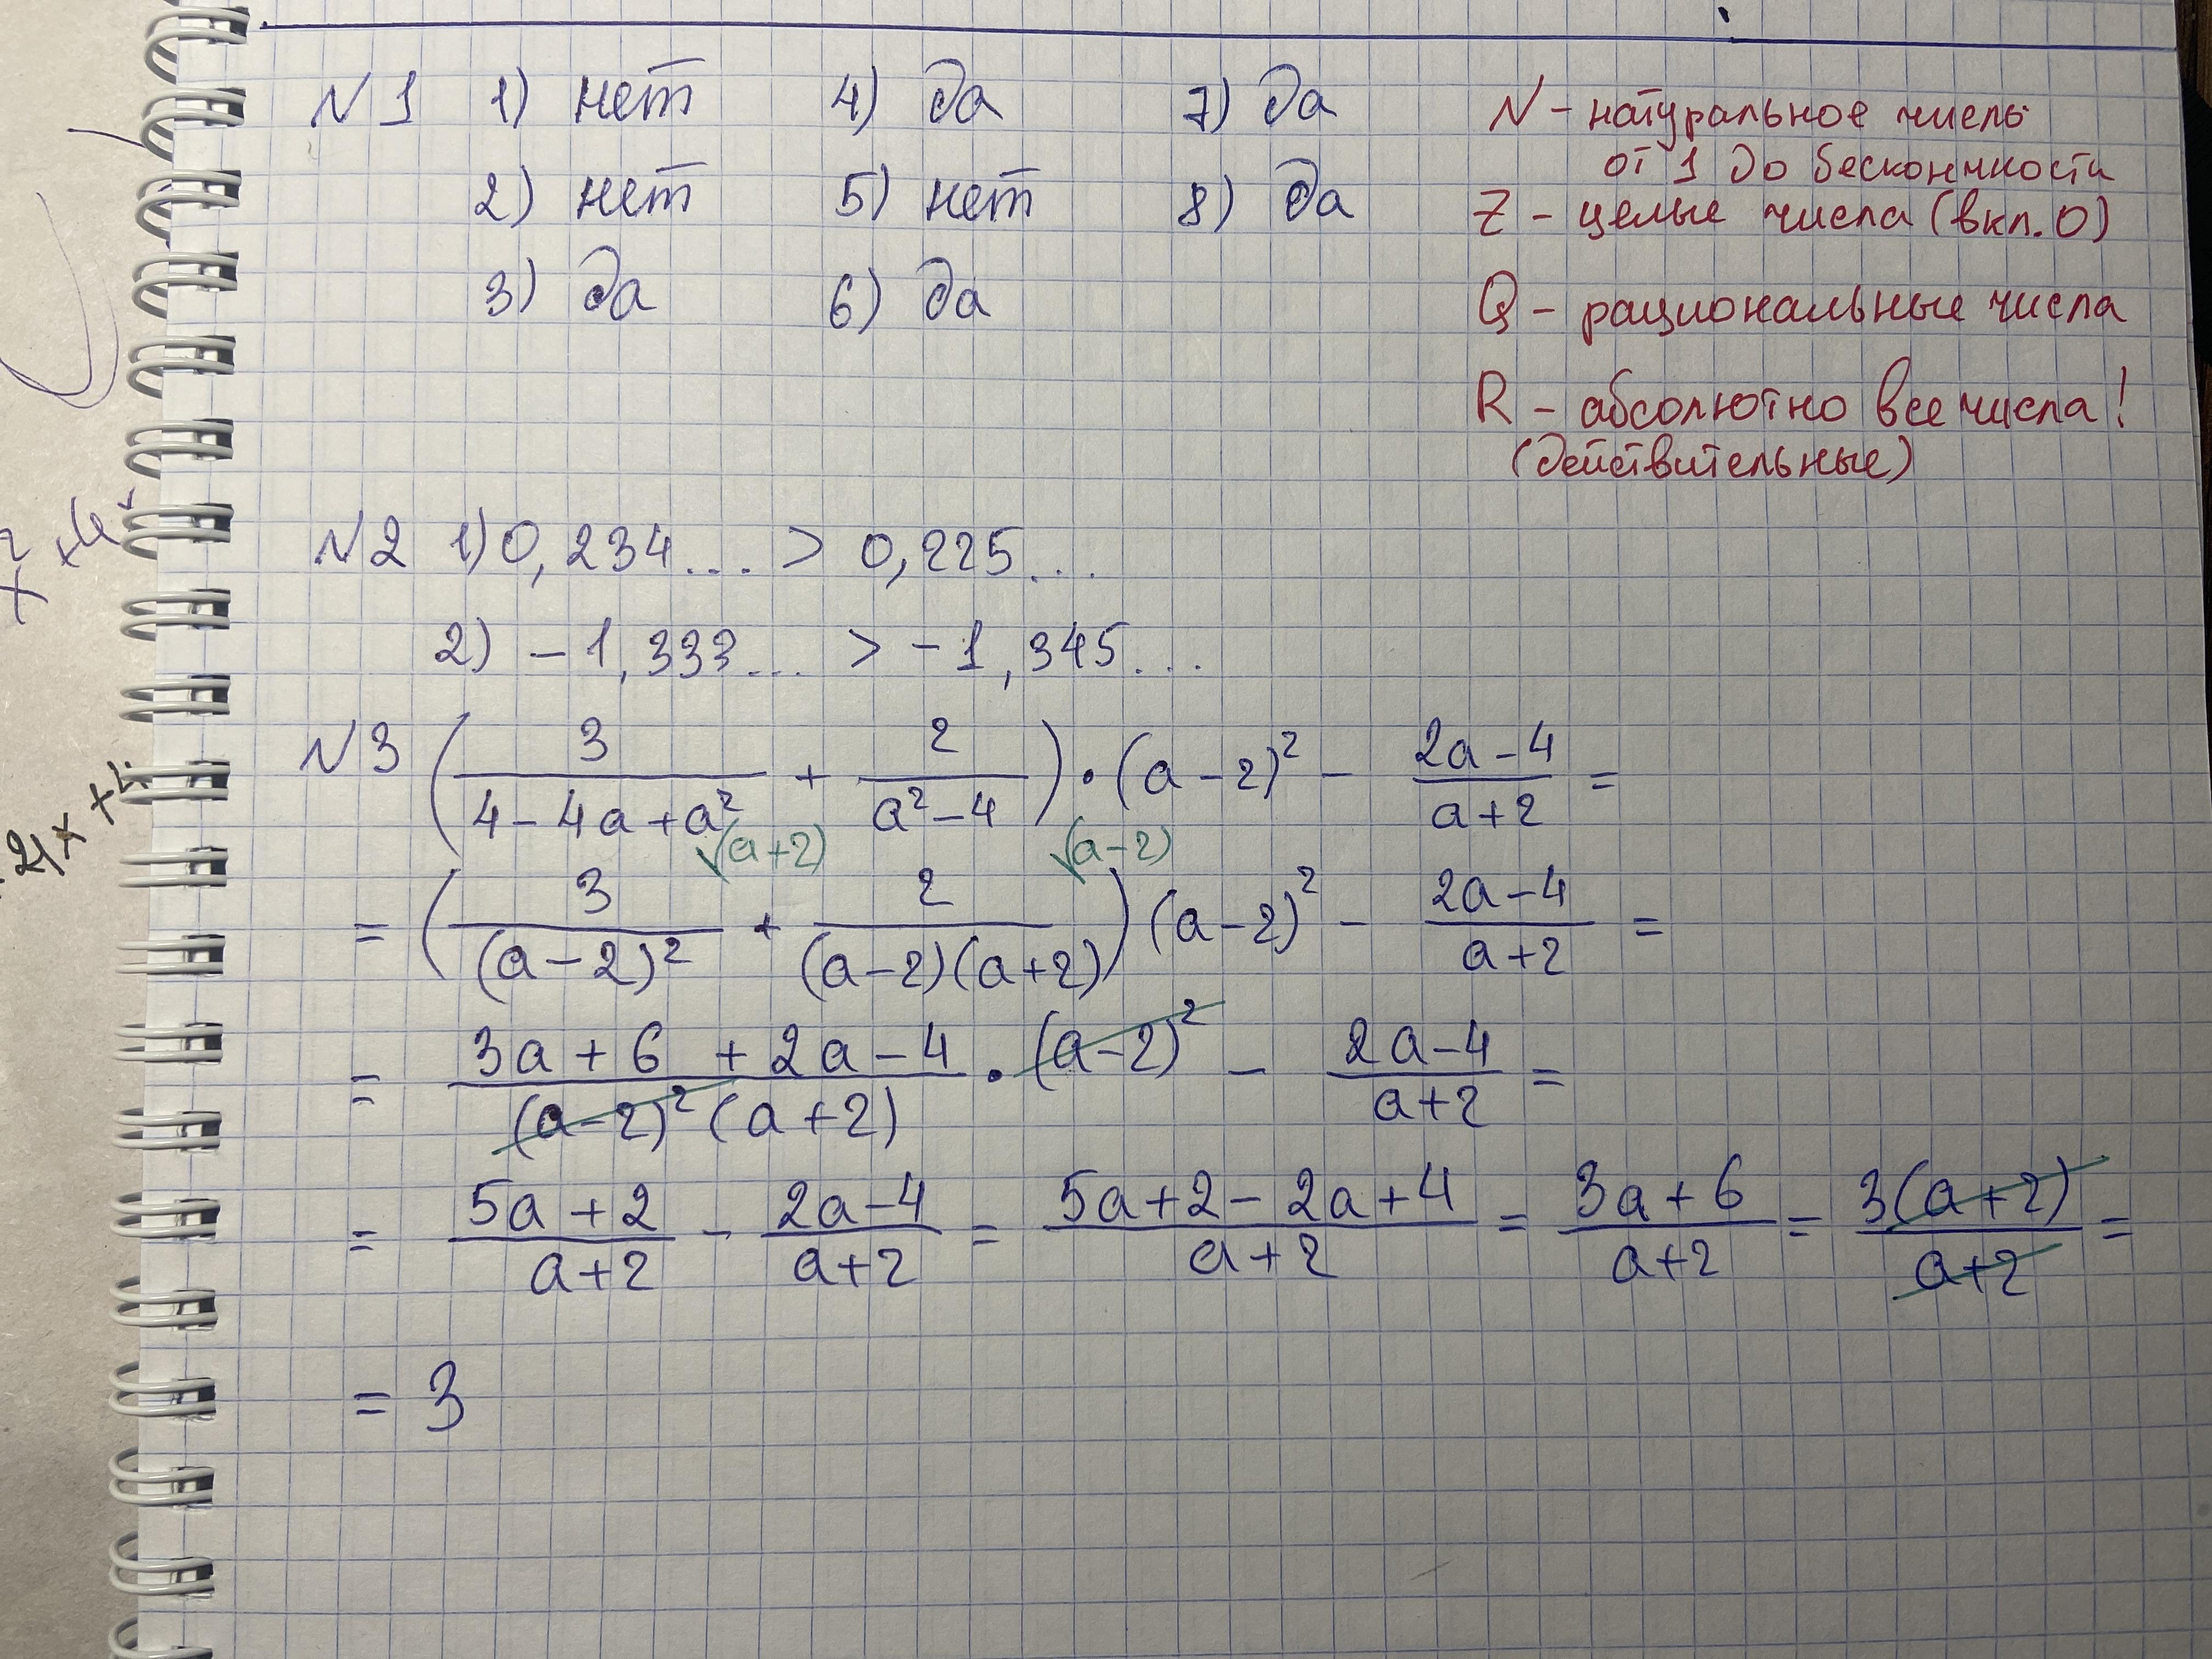 N1 1) нет 4) да 7) да
2) нет 5) нет 8) да
3) да 6) да
N - натуральное числь
от 1 до бесконечности
Z - целые числа (вкл. 0)
Q - рациональные числа
R - абсолютно все числа!
(действительные)
N2 1) 0,234... > 0,225...
2) -1,333... > -1,345...
N3 (3/(4-4a+a²) + 2/(a²-4)) · (a-2)² - (2a-4)/(a+2) =
√(a+2) √(a-2)
= (3/(a-2)² + 2/((a-2)(a+2))) (a-2)² - (2a-4)/(a+2) =
= (3a+6+2a-4)/((a-2)²(a+2)) · (a-2)² - (2a-4)/(a+2) =
= (5a+2)/(a+2) - (2a-4)/(a+2) = (5a+2-2a+4)/(a+2) = (3a+6)/(a+2) = 3(a+2)/(a+2) =
= 3